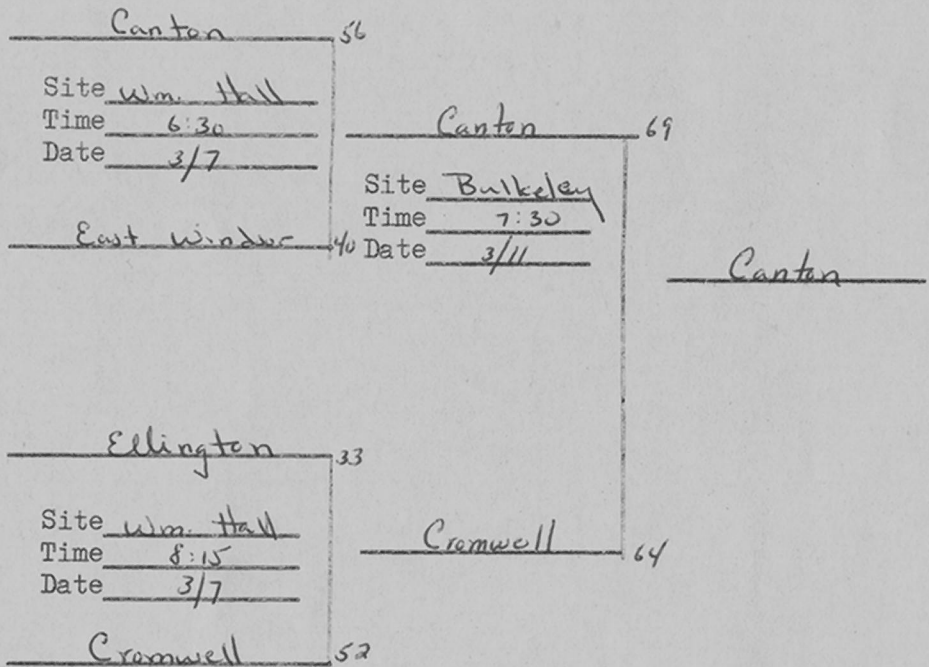 Canton 56
Site Wm. Hall
Time 6:30
Date 3/7
East Windsor 40
Canton 69
Site Bulkeley
Time 7:30
Date 3/11
Canton
Ellington 33
Site Wm. Hall
Time 8:15
Date 3/7
Cromwell 52
Cromwell 64